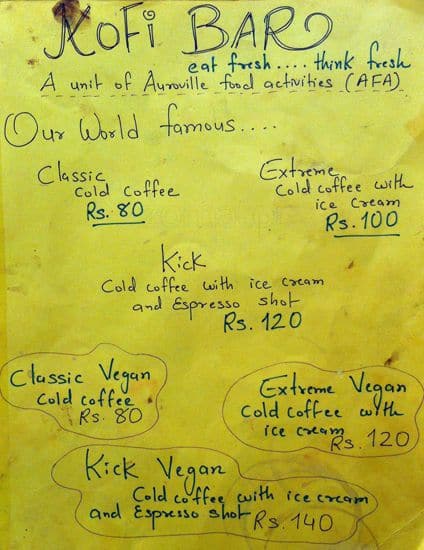 KOFi BAR
eat fresh.... think fresh
A unit of Auroville food activities (AFA)
Our World famous....
Classic
Cold coffee
Rs. 80
Extreme
Cold coffee with
ice cream
Rs. 100
Kick
Cold coffee with ice cream
and Espresso shot
Rs. 120
Classic Vegan
Cold coffee
Rs. 80
Extreme Vegan
Cold coffee with
ice cream Rs. 120
Kick Vegan
Cold coffee with ice cream
and Espresso shot Rs. 140